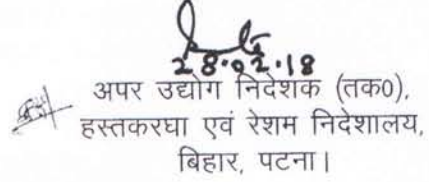 28.02.18
अपर उद्योग निदेशक (तक0),
हस्तकरघा एवं रेशम निदेशालय,
बिहार, पटना।